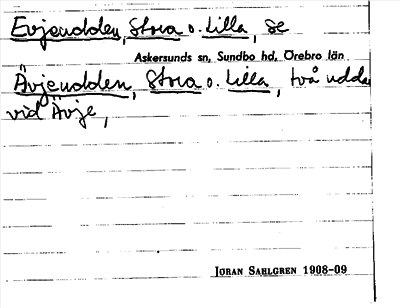 Evjeudden, Stora o. Lilla, se
Askersunds sn, Sundbo hd, Örebro län
Ävjeudden, Stora o. Lilla, två uddar
vid Ävje,
JÖRAN SAHLGREN 1908-09